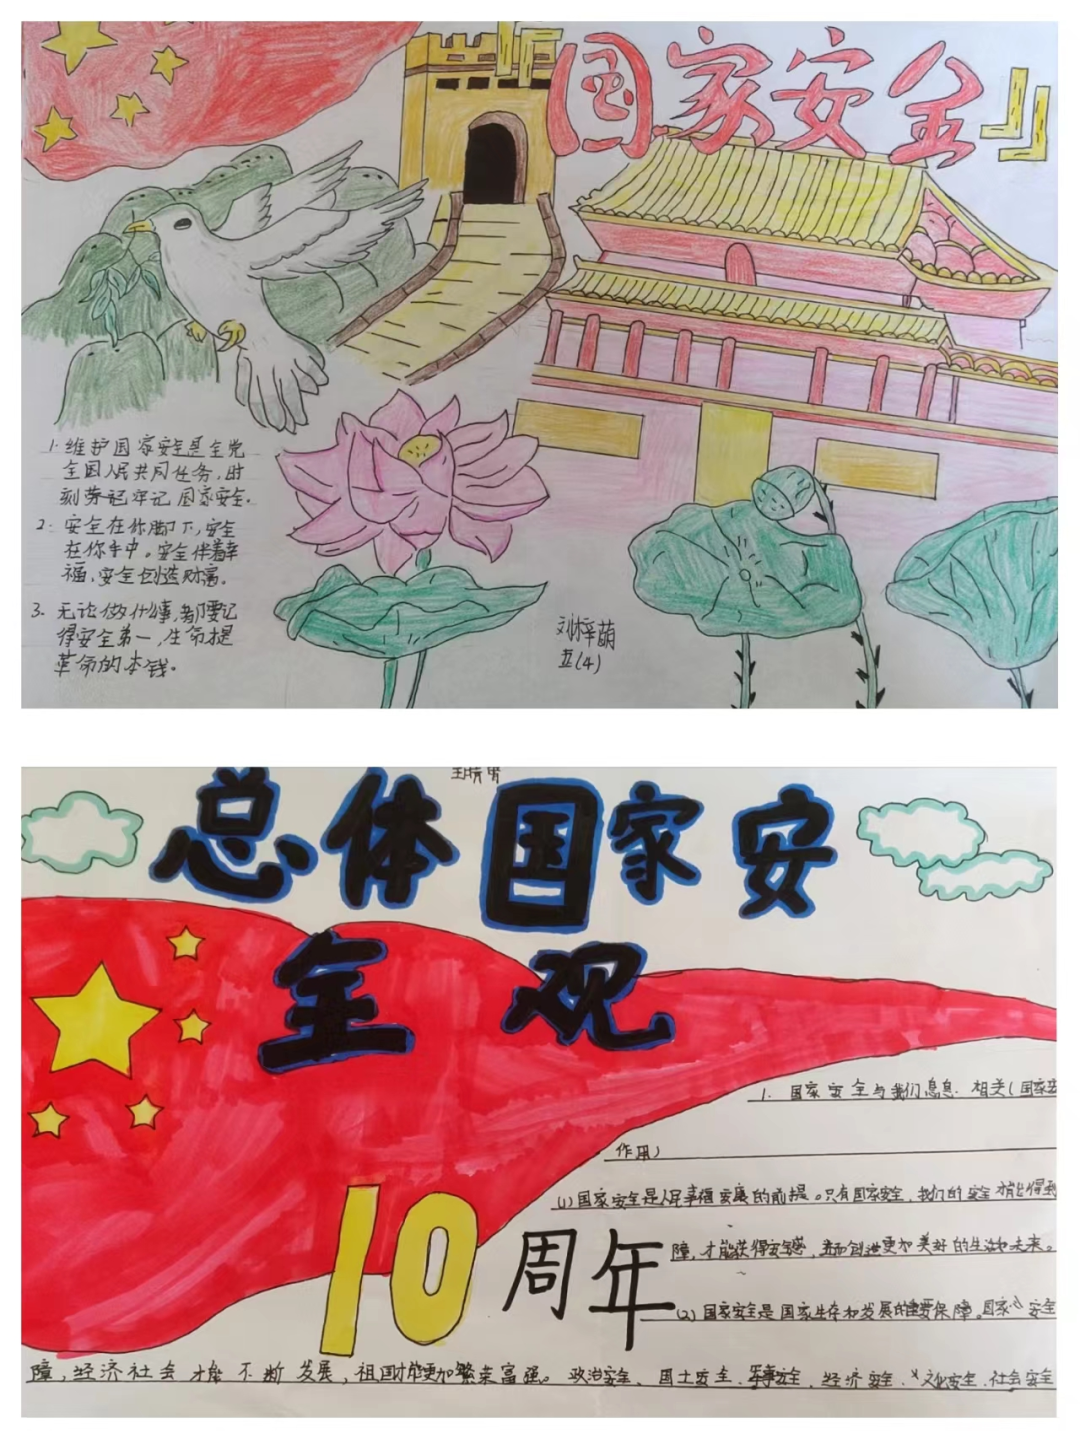 『国家安全』
1. 维护国家安全是全党
全国人民共同任务,时
刻劳记牢记国家安全。
2. 安全在你脚下,安全
在你手中。安全伴着幸
福,安全创造财富。
3. 无论做什么事,都要记
得安全第一,生命才是
革命的本钱。
五(4)
总体国家安
全观
1. 国家安全与我们息息相关(国家安
作用)
(1)国家安全是人民幸福安康的前提。只有国家安全,我们的安全才能得到
障,才能获得安全感,进而创造更加美好的生活和未来。
10周年
(2)国家安全是国家生存和发展的重要保障。国家 安全
障,经济社会才能不断发展,祖国才能更加繁荣富强。政治安全、国土安全、军事安全、经济安全、文化安全、社会安全